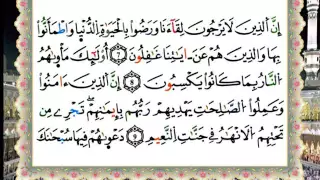 إِنَّ ٱلَّذِينَ لَا يَرْجُونَ لِقَآءَنَا وَرَضُوا۟ بِٱلْحَيَوٰةِ ٱلدُّنْيَا وَٱطْمَأَنُّوا۟
بِهَا وَٱلَّذِينَ هُمْ عَنْ ءَايَٰتِنَا غَٰفِلُونَ ٧ أُو۟لَٰٓئِكَ مَأْوَىٰهُمُ
ٱلنَّارُ بِمَا كَانُوا۟ يَكْسِبُونَ ٨ إِنَّ ٱلَّذِينَ ءَامَنُوا۟
وَعَمِلُوا۟ ٱلصَّٰلِحَٰتِ يَهْدِيهِمْ رَبُّهُم بِإِيمَٰنِهِمْ تَجْرِى مِن
تَحْتِهِمُ ٱلْأَنْهَٰرُ فِى جَنَّٰتِ ٱلنَّعِيمِ ٩ دَعْوَىٰهُمْ فِيهَا سُبْحَٰنَكَ